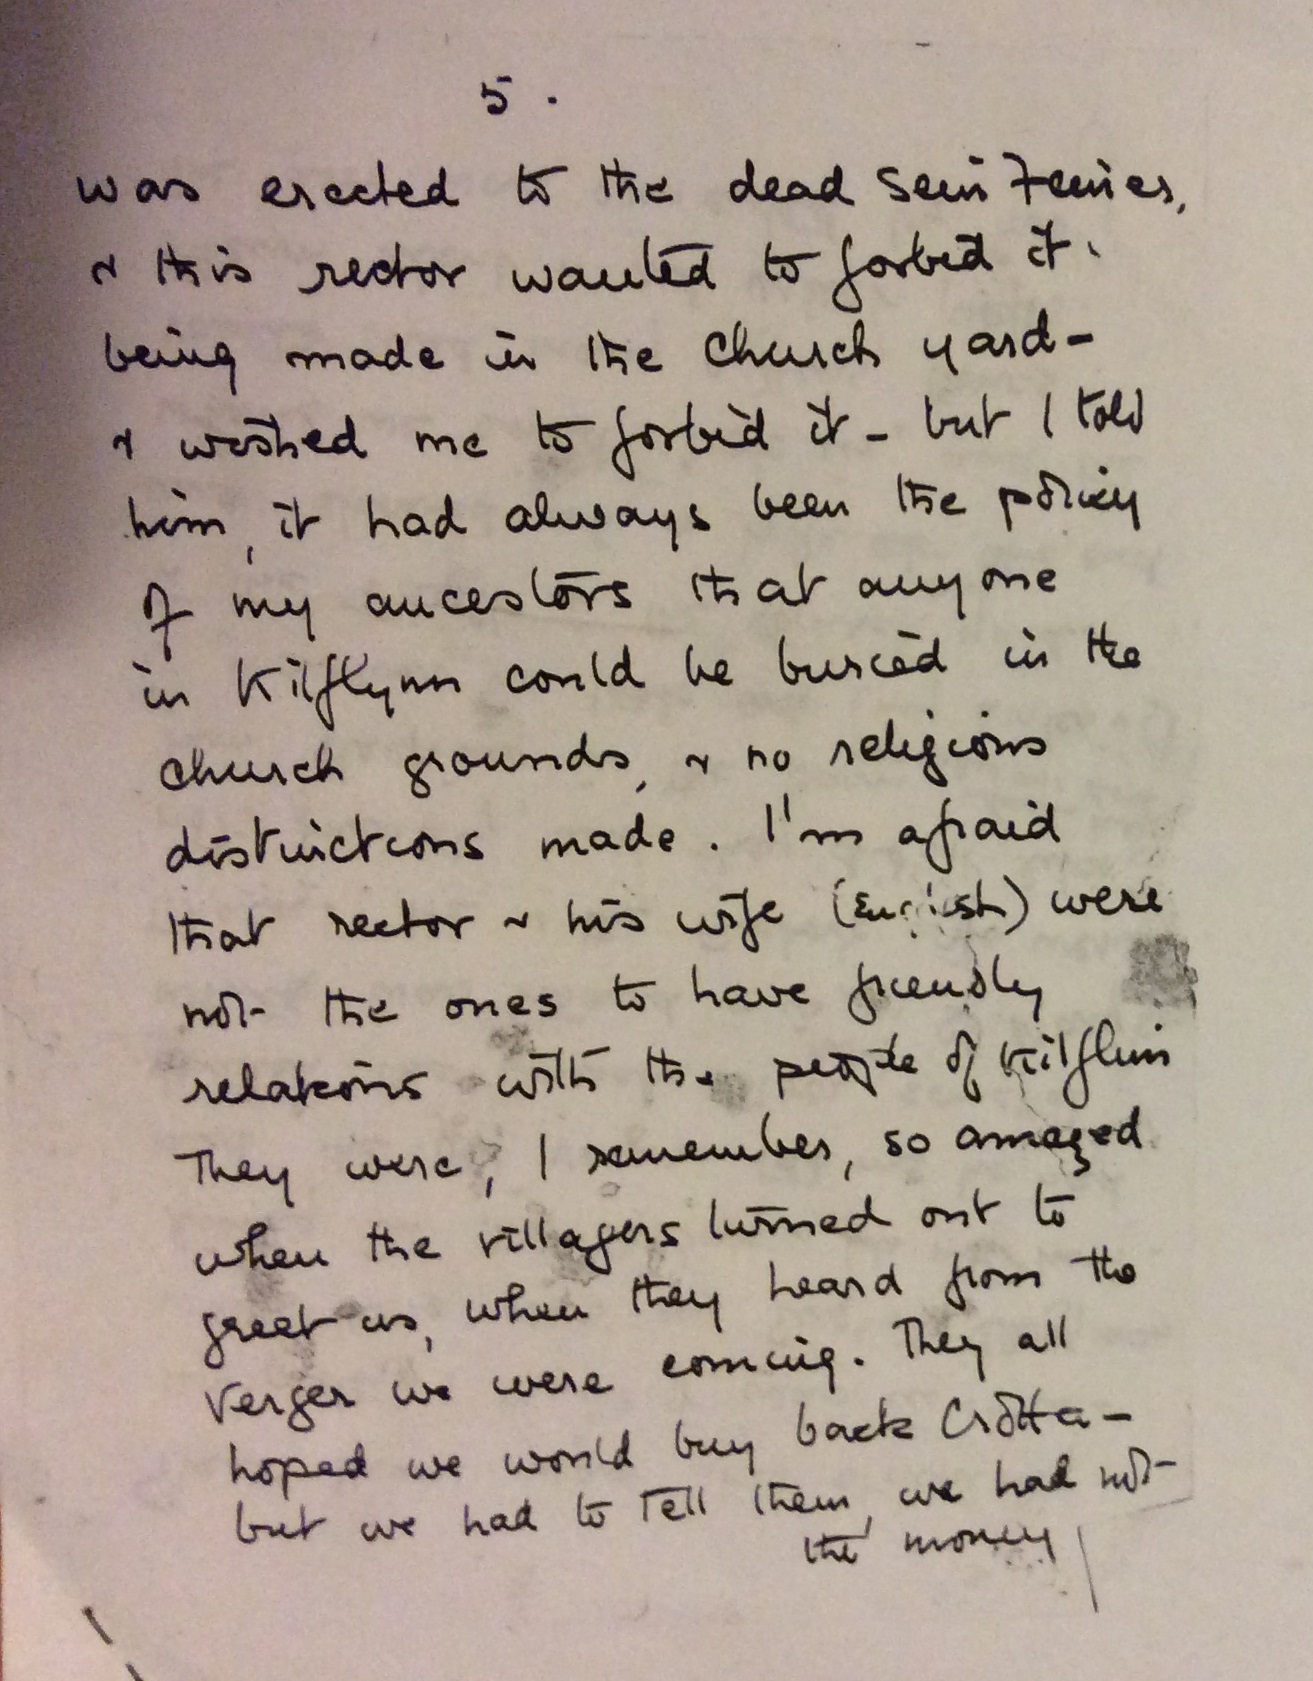 5.
was erected to the dead Sein Feiners,
& this rector wanted to forbid it
being made in the church yard -
& wished me to forbid it - but I told
him, it had always been the policy
of my ancestors that anyone
in Kilflynn could be buried in the
church grounds, & no religious
distinctions made. I'm afraid
that rector & his wife (English) were
not the ones to have friendly
relations with the people of Kilflin
They were, I remember, so amazed
when the villagers turned out to
greet us, when they heard from the
Verger we were coming. They all
hoped we would buy back Crotta -
but we had to tell them, we had not
the money